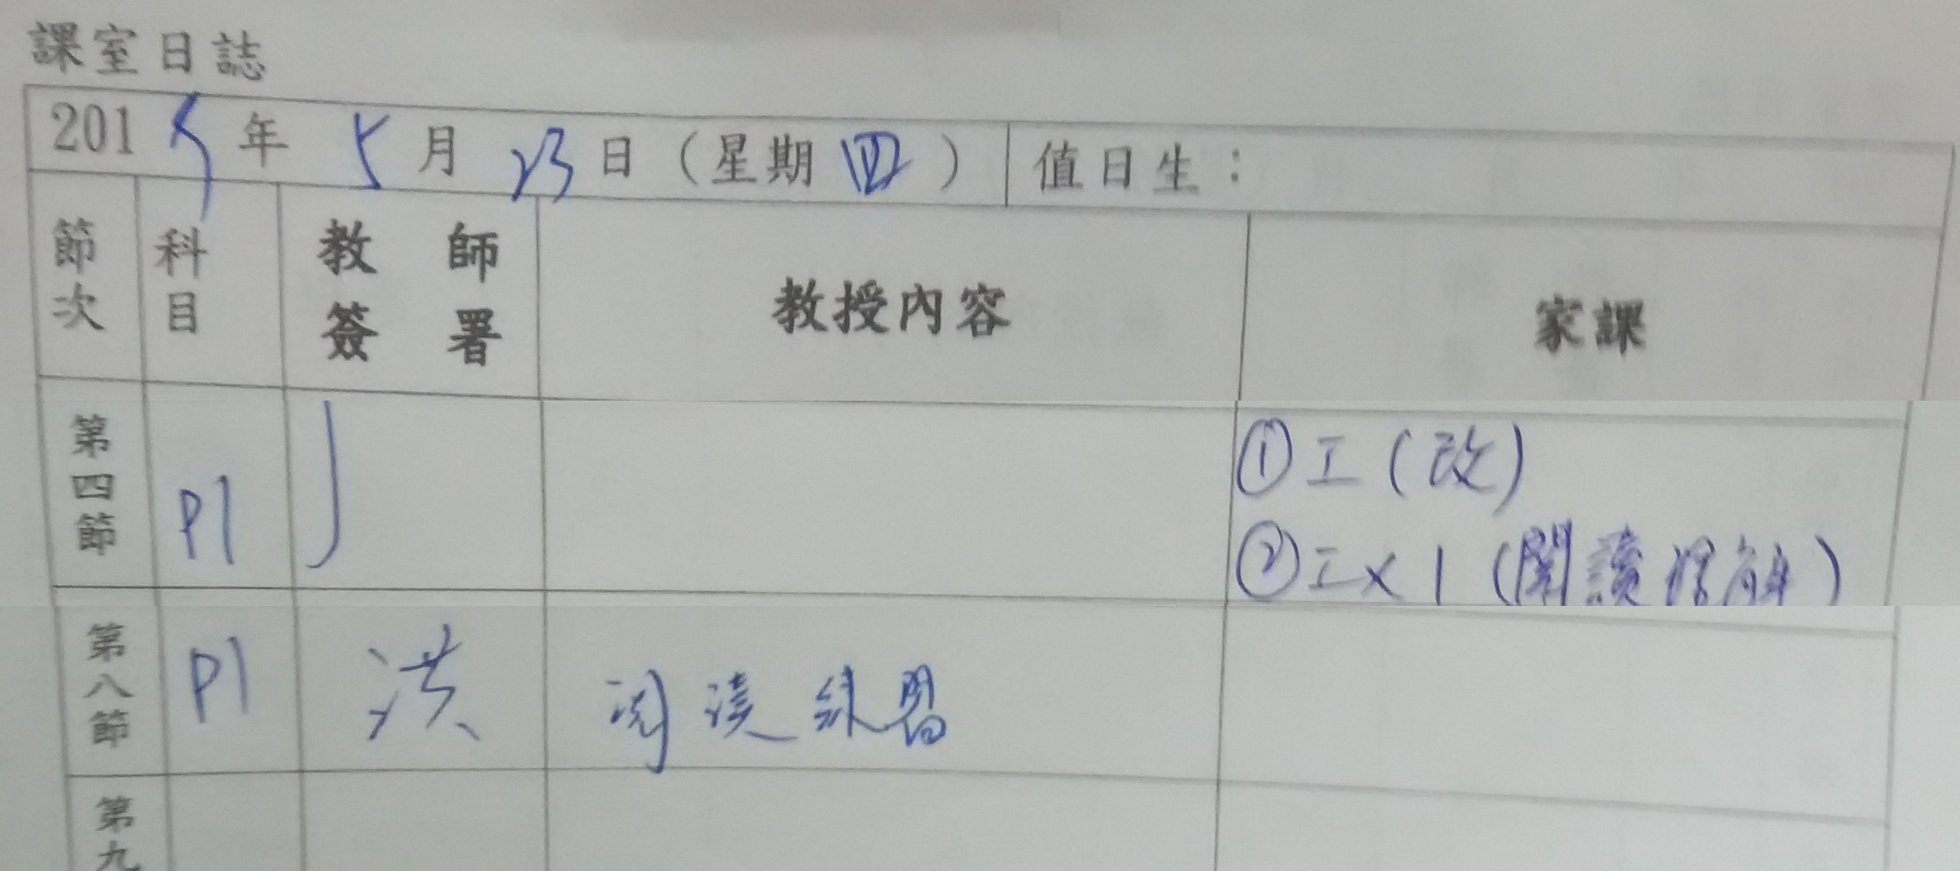 課室日誌
2019年 5月 23日（星期四） 值日生：
節次 科目 教師簽署 教授內容 家課
第四節 P1 ①工(改)
②工×1 (閱讀理解)
第八節 P1 洪 阅读練習
第九